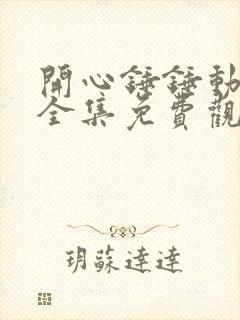 開心錘錘動
全集免費觀
玥蘇達達